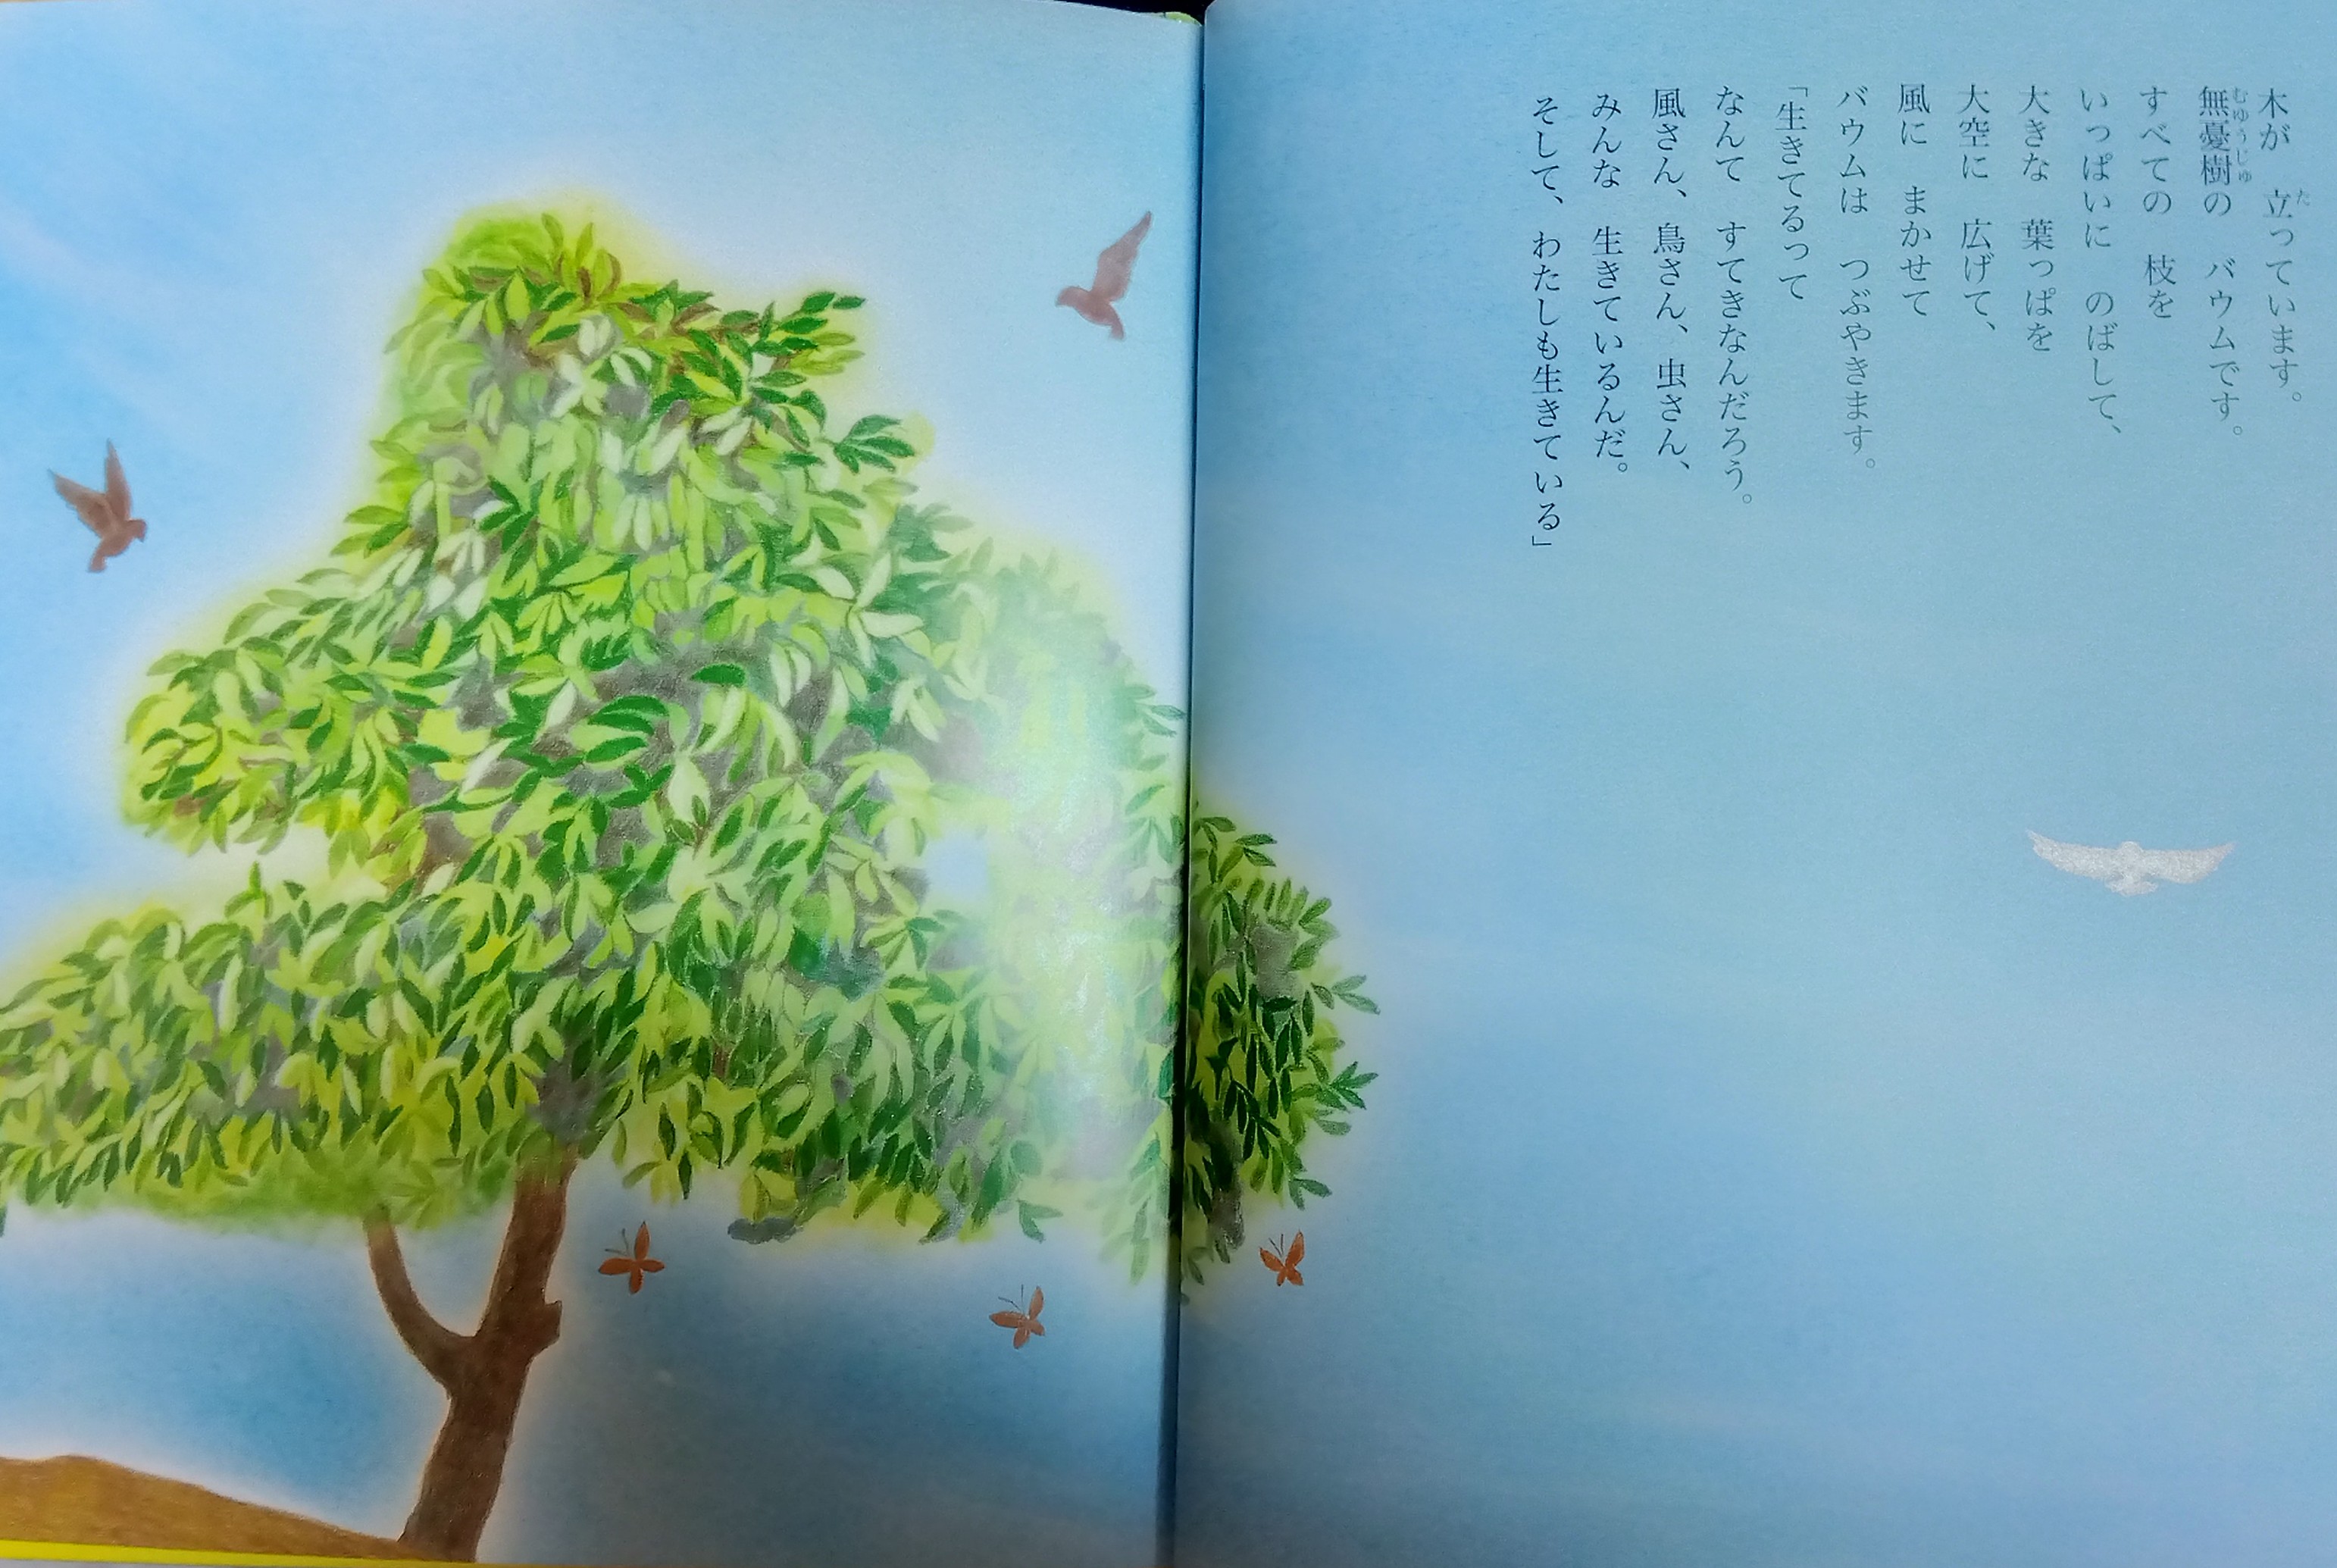 木が　立っています。
無憂樹の　バウムです。
すべての　枝を
いっぱいに　のばして、
大きな　葉っぱを
大空に　広げて、
風に　まかせて
バウムは　つぶやきます。
「生きてるって
なんて　すてきなんだろう。
風さん、鳥さん、虫さん、
みんな　生きているんだ。
そして、わたしも生きている」